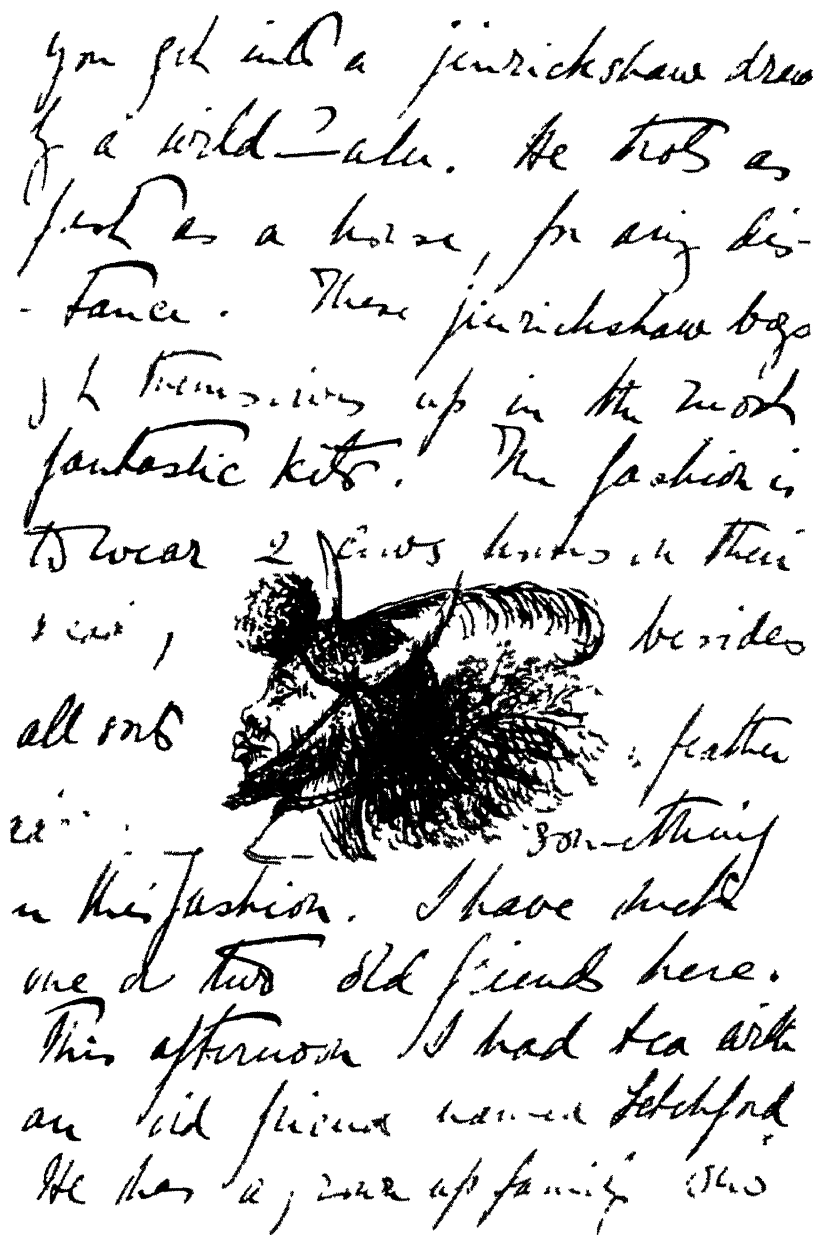 you get into a jinrickshaw drawn
by a wild Zulu. He trots as
fast as a horse, for any dis-
-tance. These jinrickshaw boys
get themselves up in the most
fantastic kits. The fashion is
to wear 2 cows horns in their
hair, besides
all sorts feather
something
in this fashion. I have met
one or two old friends here.
This afternoon I had tea with
an old friend named Letchford
He has a grown up family who